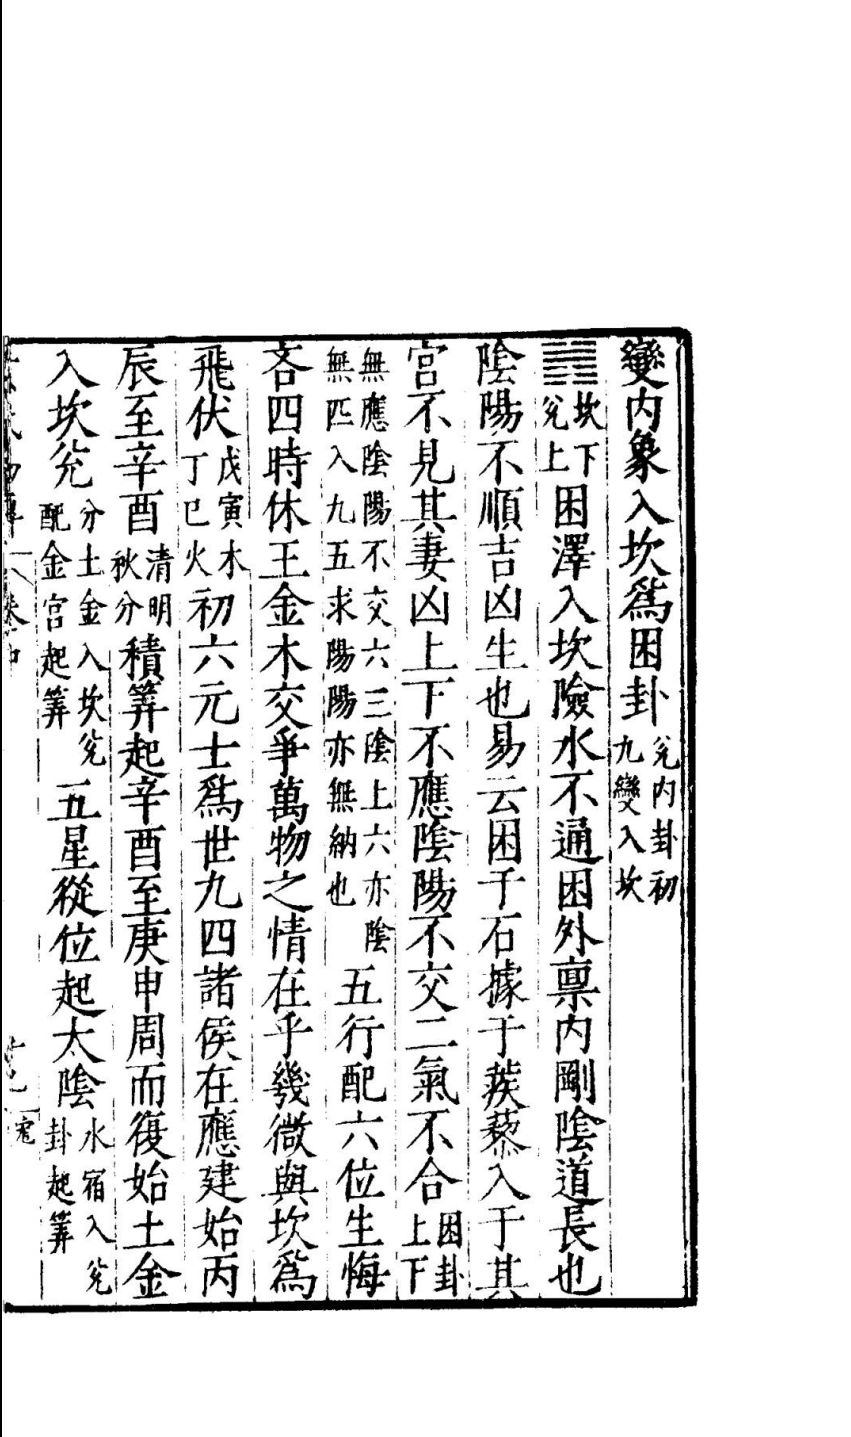 變内象入坎爲困卦兊内卦初九變入坎
䷮坎下兊上困澤入坎險水不通困外禀内剛陰道長也
陰陽不順吉凶生也易云困于石據于蒺藜入于其
宫不見其妻凶上下不應陰陽不交二氣不合困卦上下
無應陰陽不交六三陰上六亦陰無匹入九五求陽陽亦無納也五行配六位生悔
吝四時休王金木交爭萬物之情在乎幾微與坎爲
飛伏戊寅木丁巳火初六元士爲世九四諸侯在應建始丙
辰至辛酉清明秋分積筭起辛酉至庚申周而復始土金
入坎兊分土金入坎兊配金宫起筭五星從位起太陰水宿入兊卦起筭